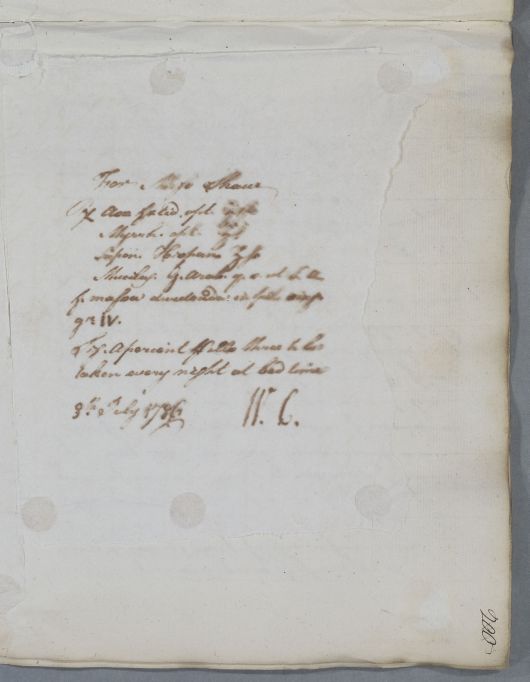 For Miss Shaw
Myrrh. opt.
Sapon. Hispan. ʒss
Mucilag. G. Arab. q. s. ut f.
f. massa dividenda in pil. sing.
gr: IV.
Aperient Pills three to be
taken every night at bed time
8th July 1786 W. C.
200